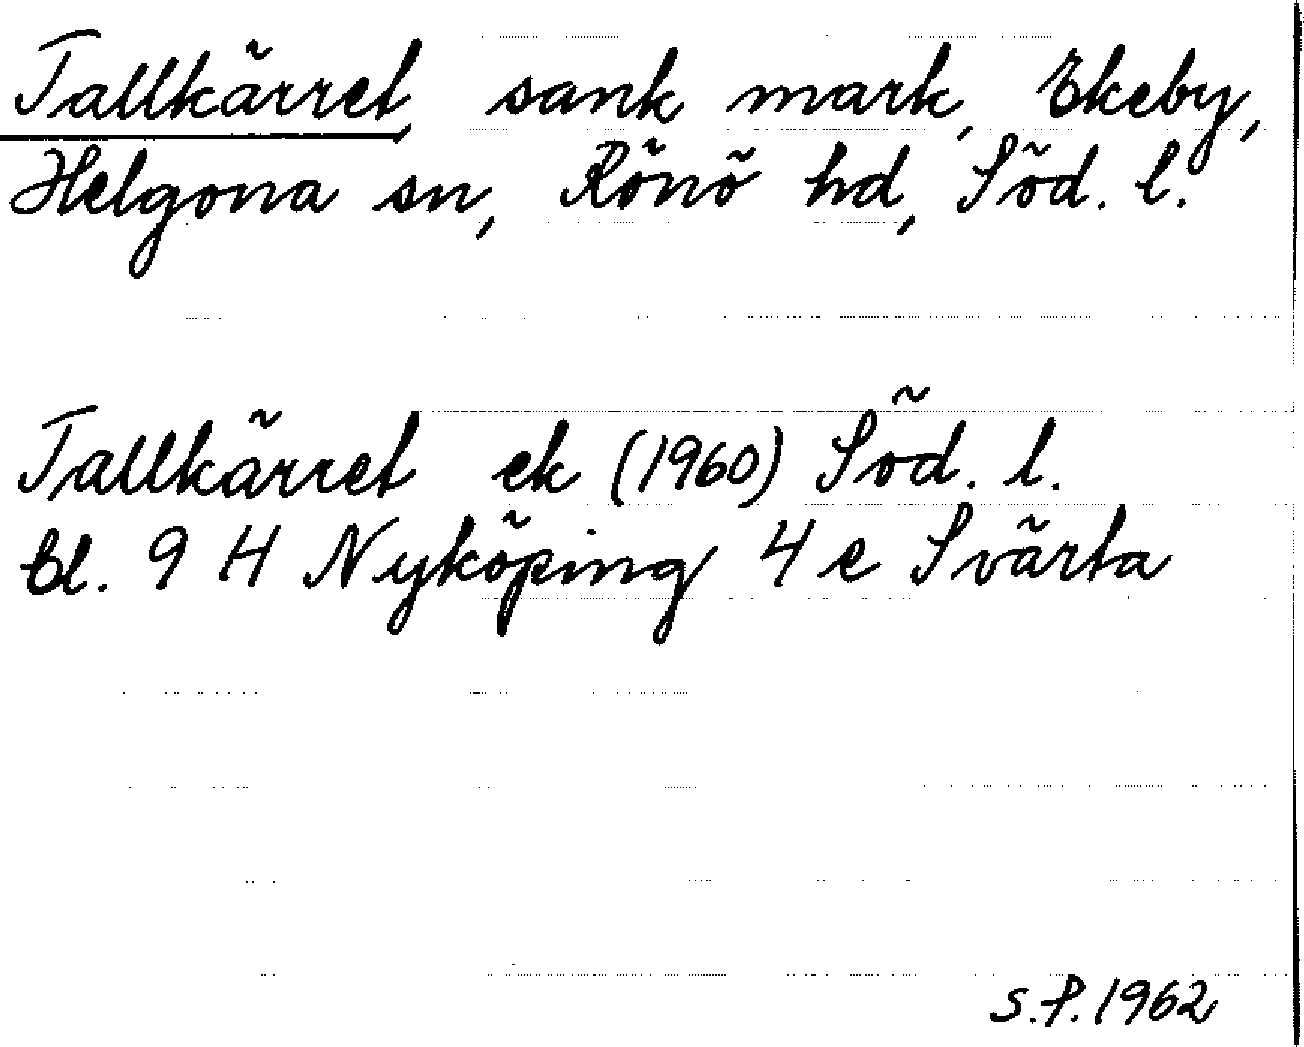 Tallkärret, sank mark, Ekeby,
Helgona sn, Rönö hd, Söd. l.
Tallkärret ek (1960) Söd. l.
bl. 9 H Nyköping 4 e Svärta
S.P. 1962